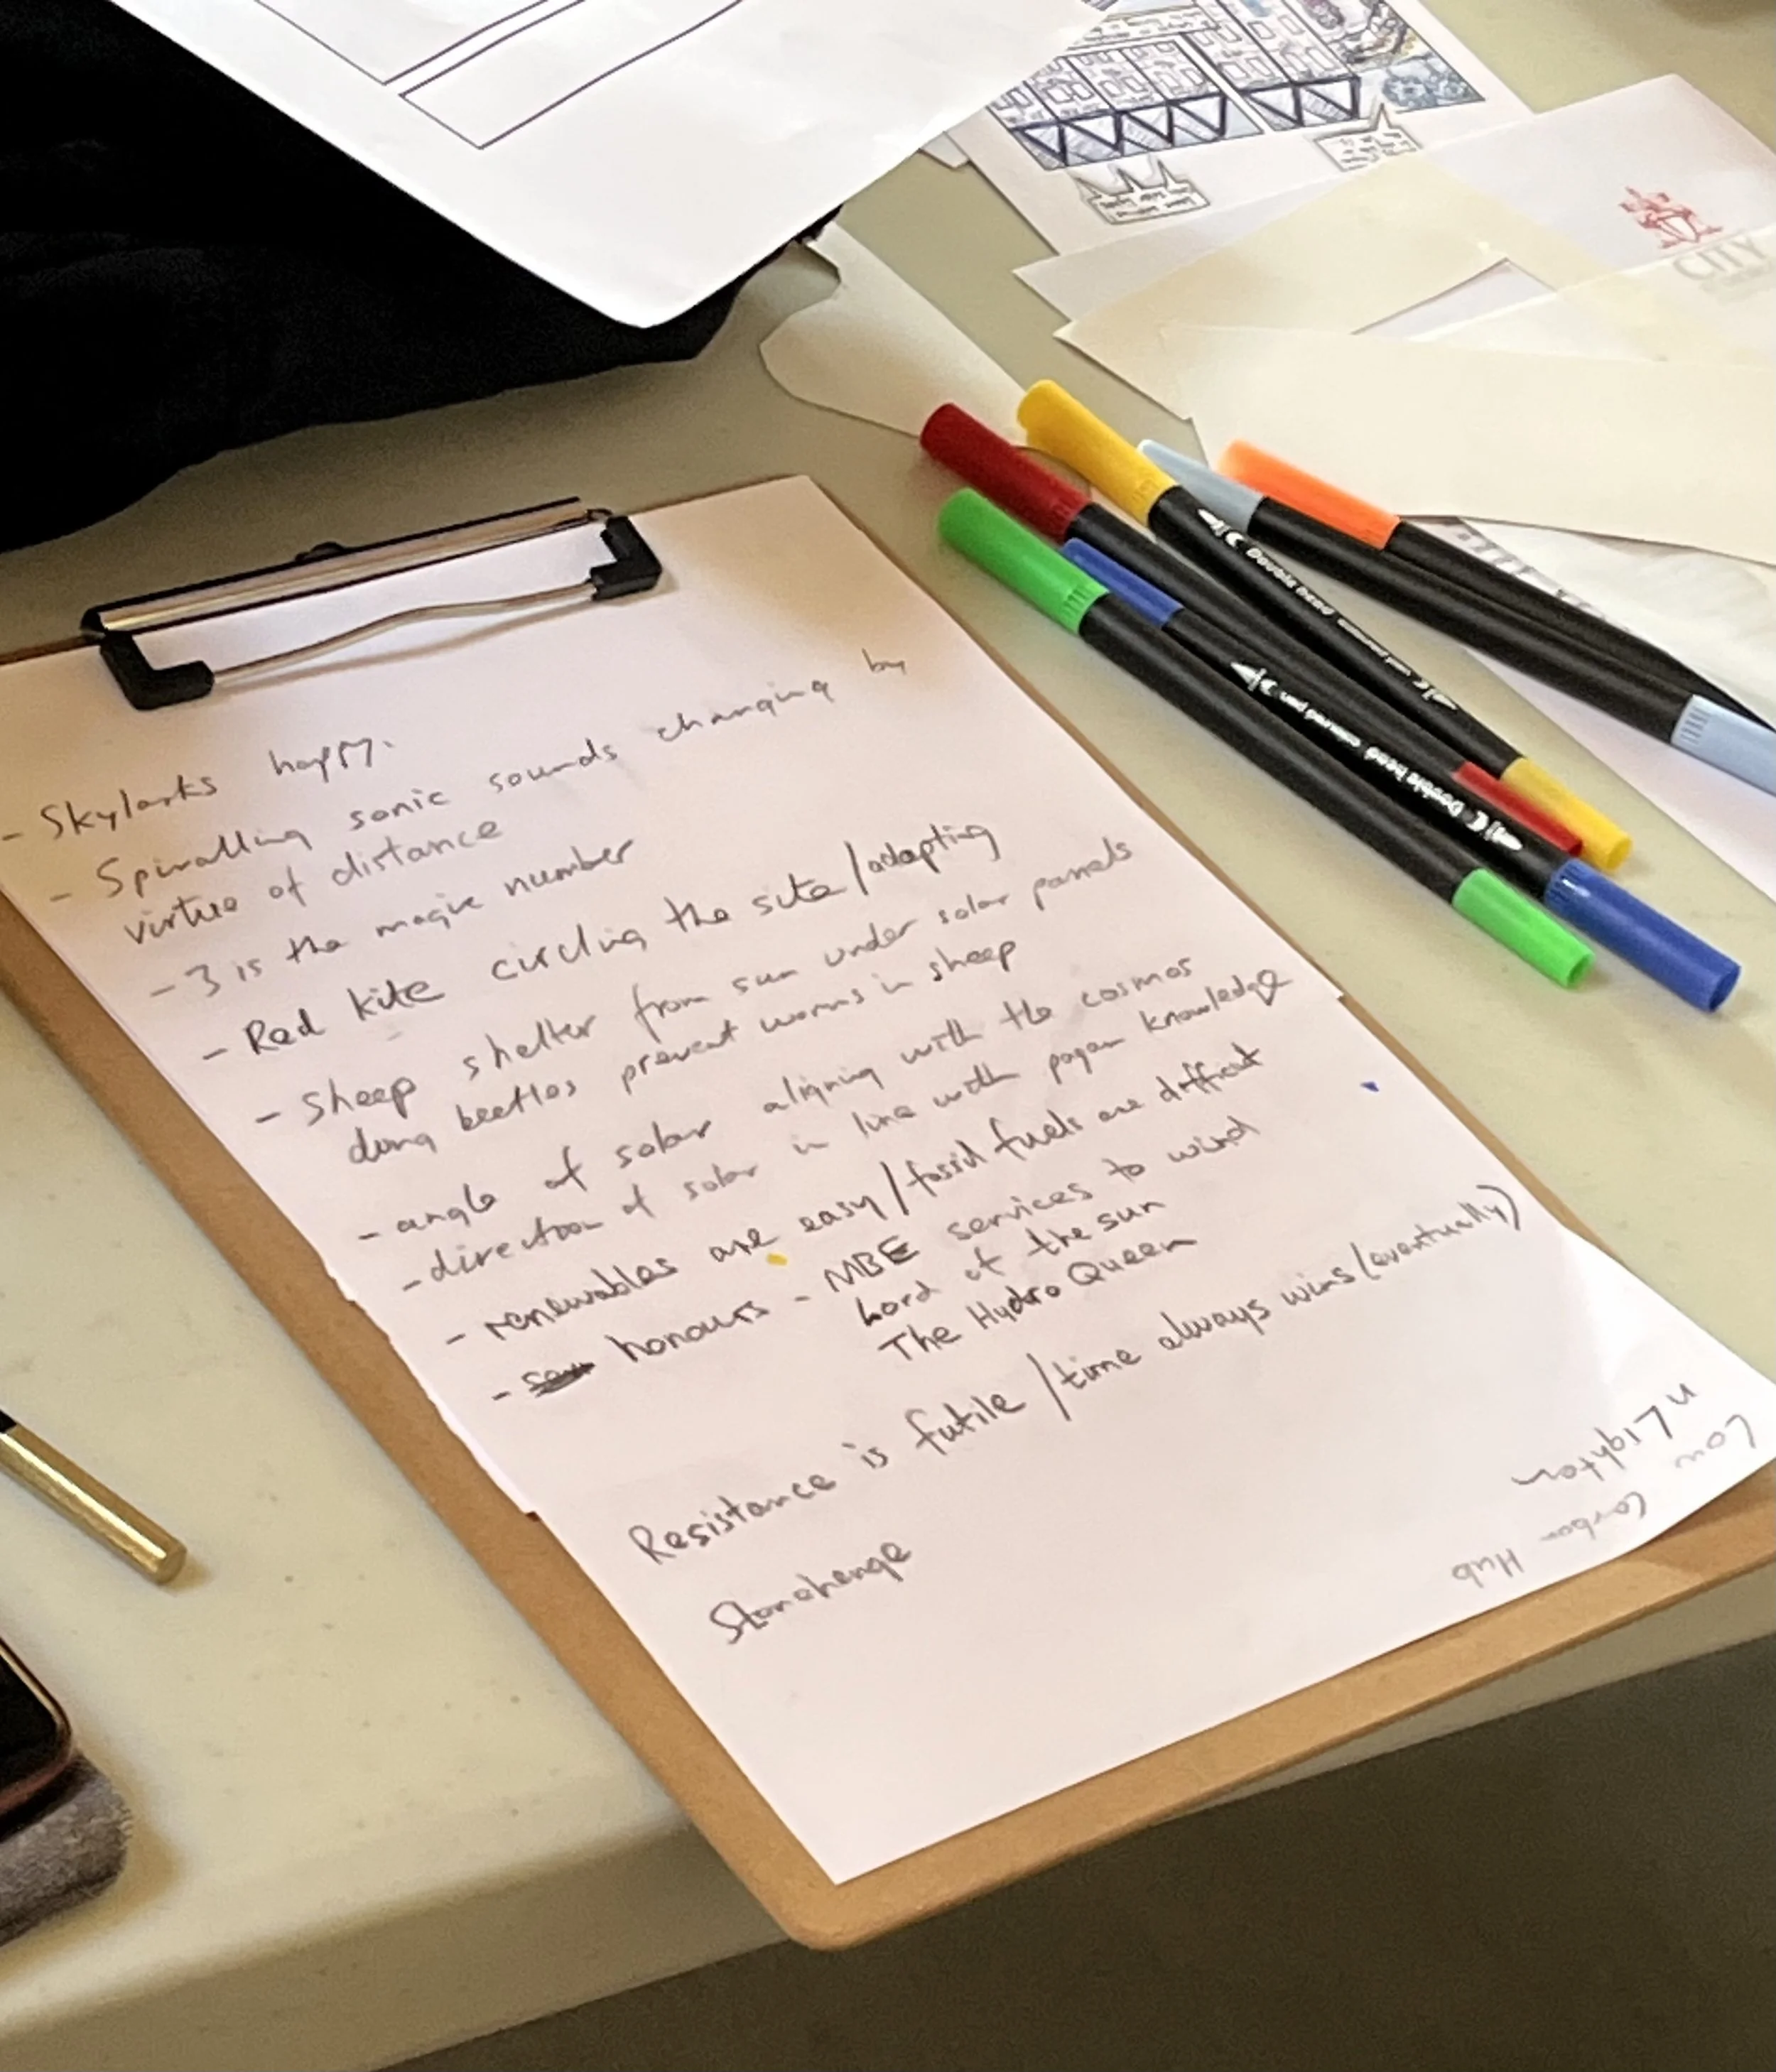 - Skylarks happy.
- Spiralling sonic sounds changing by
virtue of distance
- 3 is the magic number
- Red kite circling the site/adapting
- Sheep shelter from sun under solar panels
dung beetles prevent worms in sheep
- angle of solar aligning with the cosmos
- direction of solar in line with pagan knowledge
- renewables are easy/fossil fuels are difficult
- honours - MBE services to wind
Lord of the sun
The Hydro Queen
Resistance is futile/time always wins (eventually)
Stonehenge
Low Carbon Hub
CITY
Double head
Double head